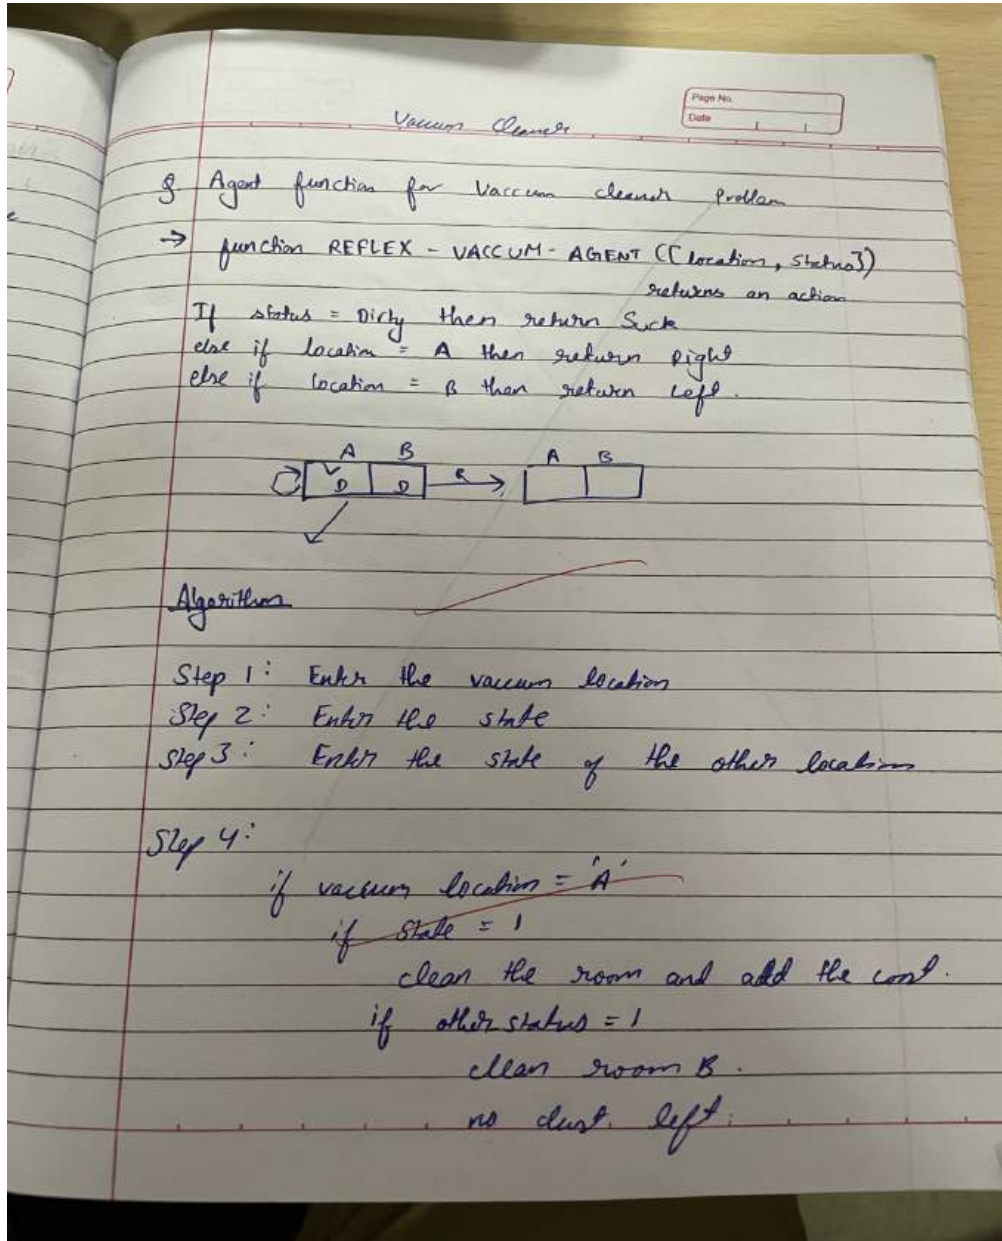 Page No.
Date
Vaccum Cleaner
Q Agent function for Vaccum cleaner Problem
→ function REFLEX - VACCUM - AGENT ([location, status])
returns an action
If status = Dirty then return Suck
else if location = A then return Right
else if location = B then return Left.
A B A B
D D R
Algorithm
Step 1: Enter the vaccum location
Step 2: Enter the state
Step 3: Enter the state of the other location
Step 4:
if vaccum location = 'A'
if State = 1
clean the room and add the cost.
if other status = 1
clean room B.
no dust left.